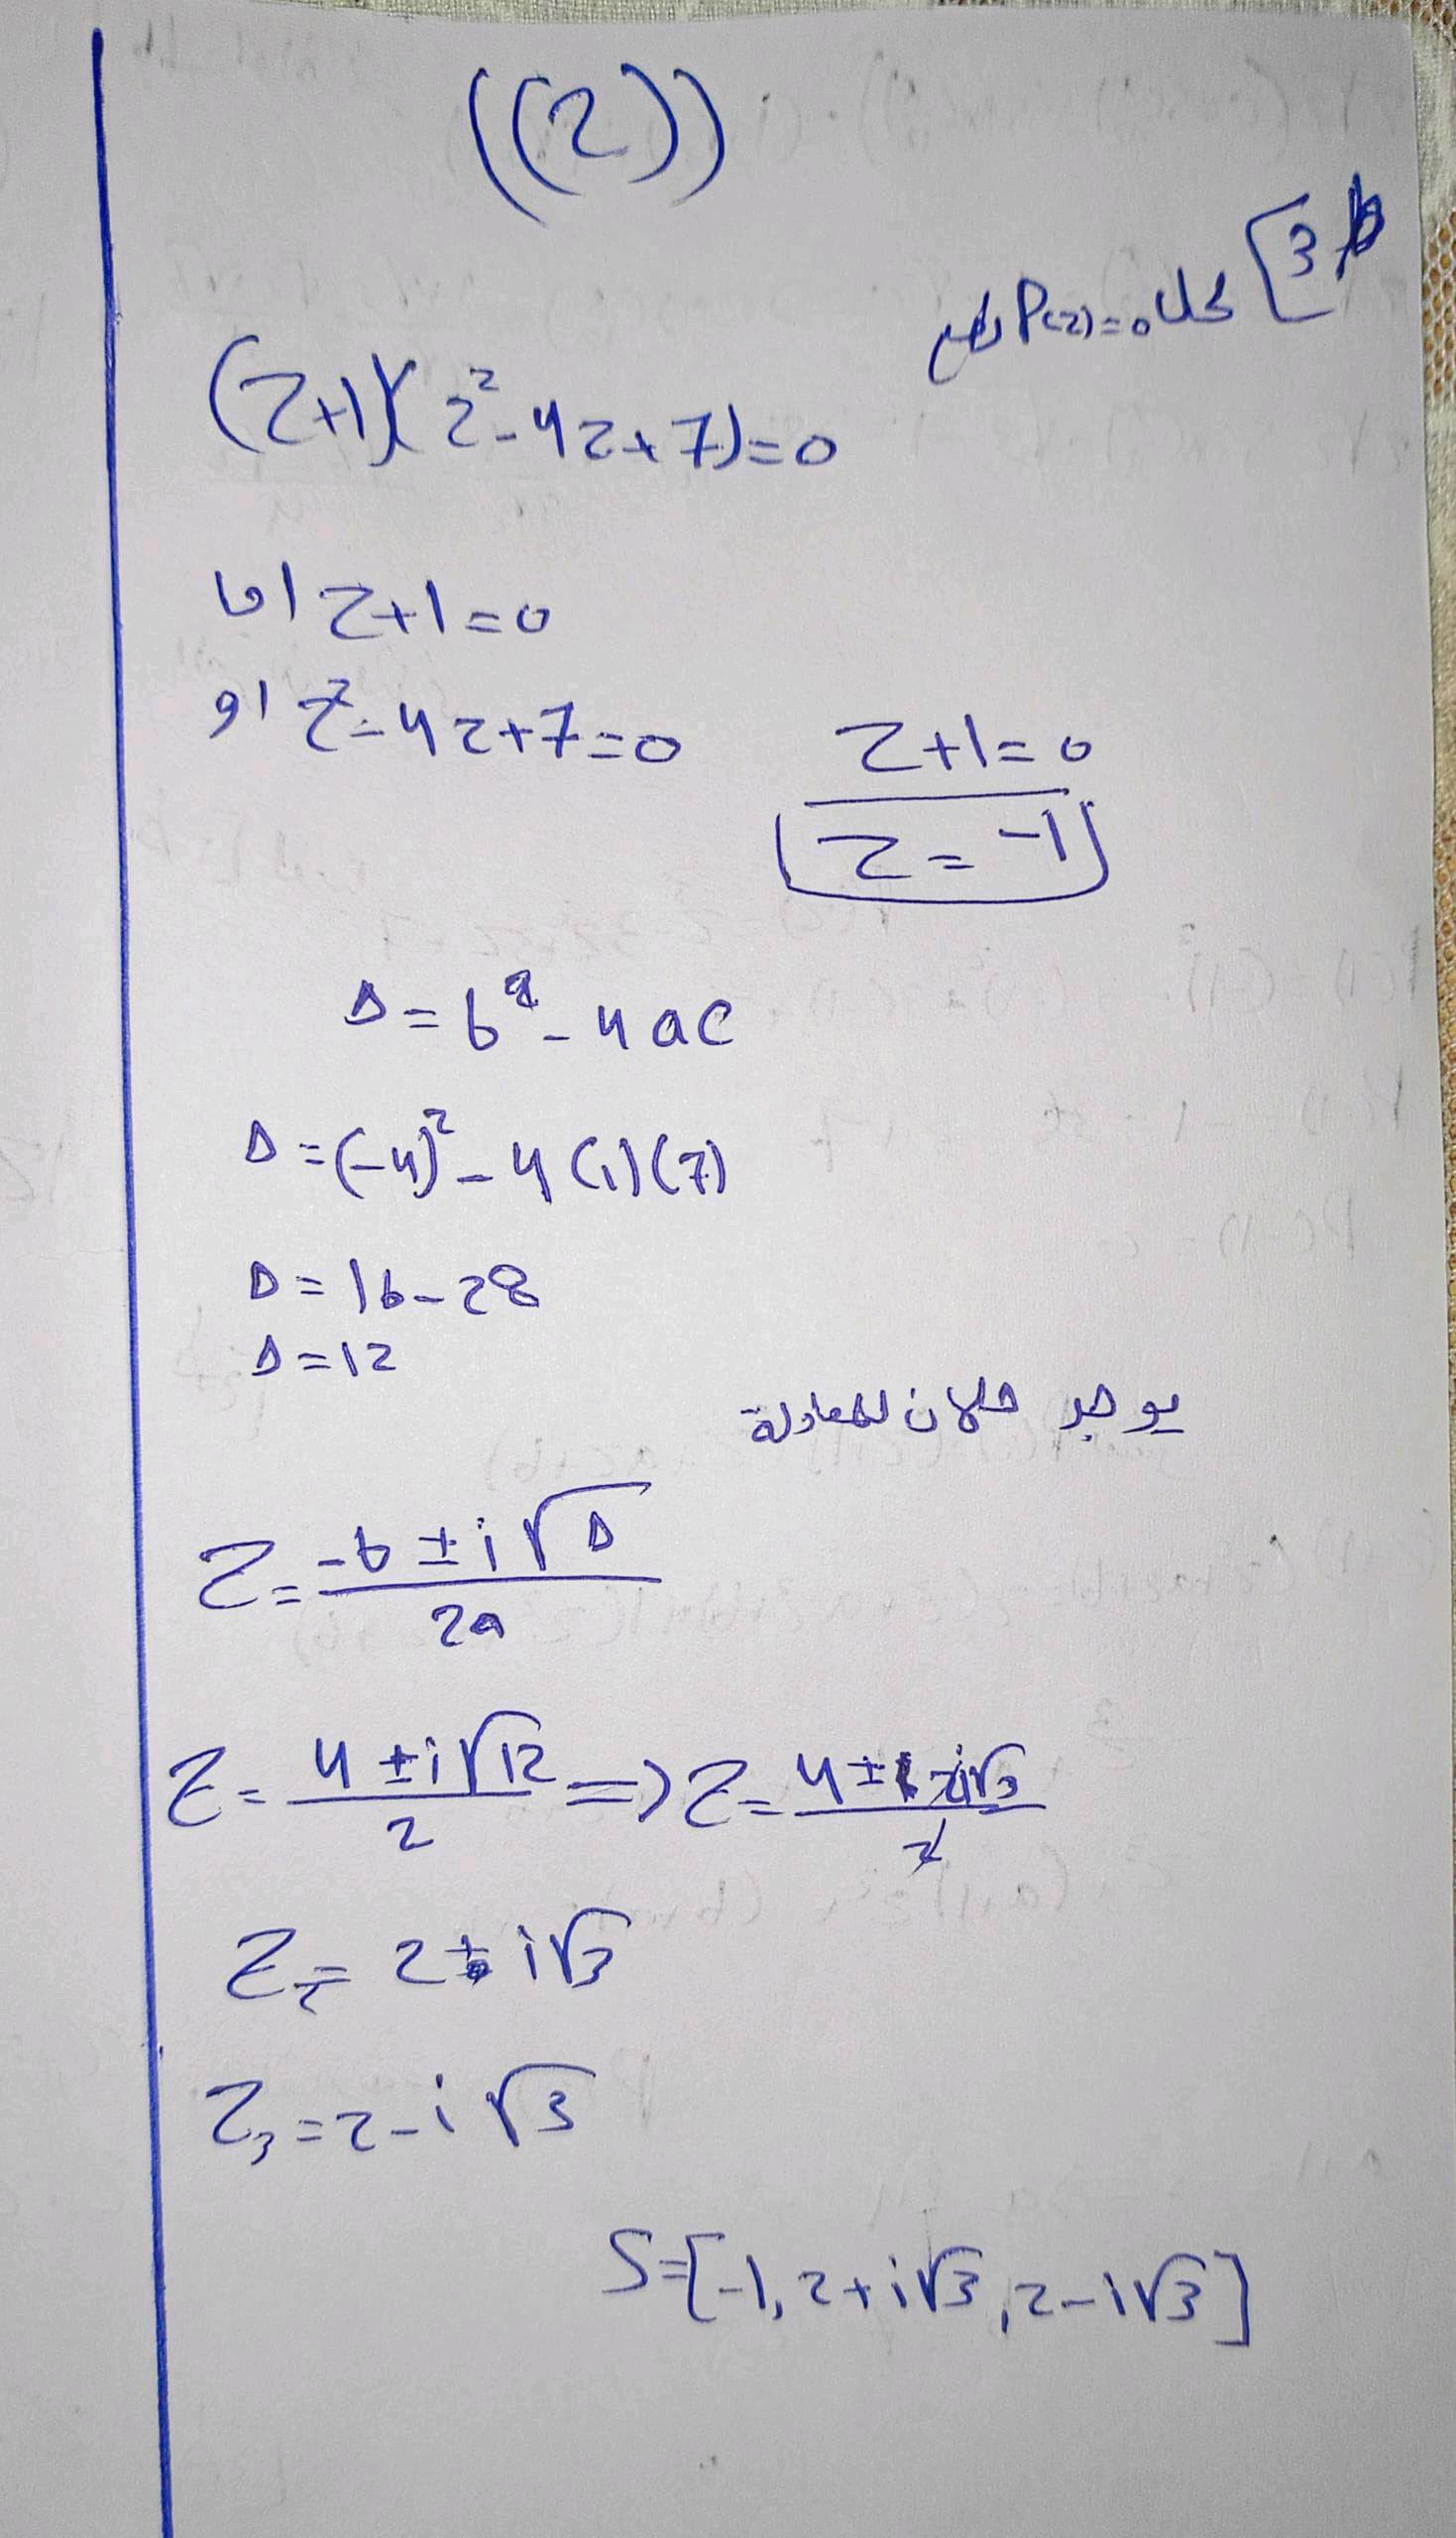 ((2))
3] لحل P(z)=0 نضع
(z+1)(z²-4z+7)=0
اما z+1=0
او z²-4z+7=0
z+1=0
z=-1
Δ=b²-4ac
Δ=(-4)²-4(1)(7)
Δ=16-28
Δ=12
يوجد حلان للمعادلة
z=(-b±i√Δ)/2a
z=(4±i√12)/2 => z=(4±2i√3)/2
z₂=2+i√3
z₃=2-i√3
S=[-1, 2+i√3, 2-i√3]